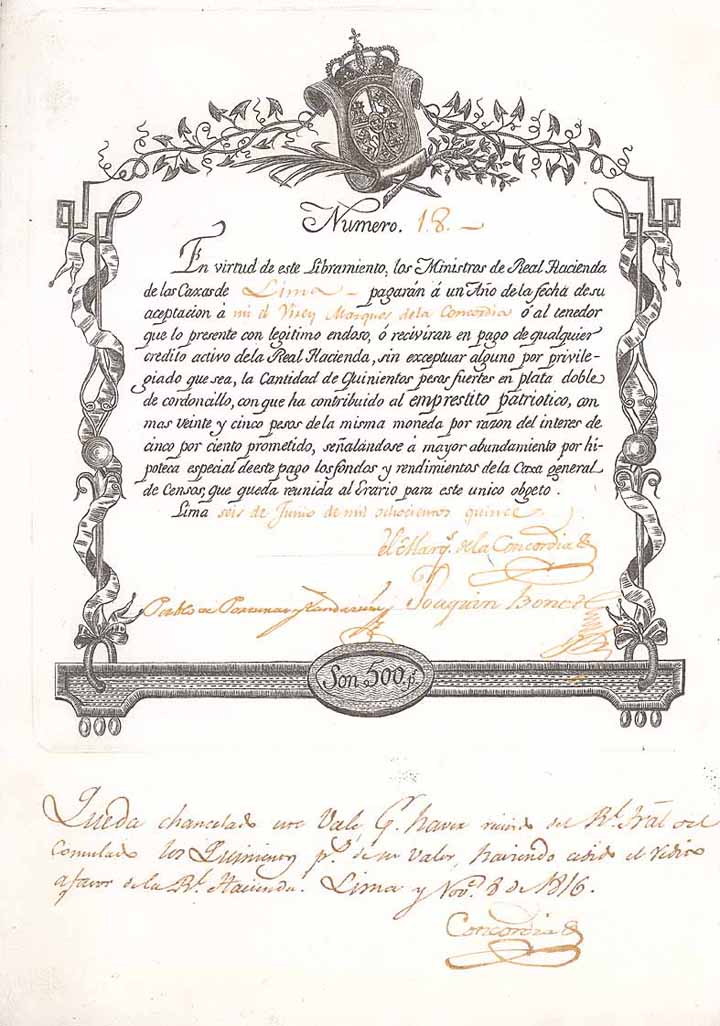 Numero. 18.
En virtud de este Libramiento, los Ministros de Real Hacienda
de las Caxas de Lima pagarán á un Año de la fecha de su
aceptacion á mi el Virey Marques de la Concordia ó al tenedor
que lo presente con legitimo endoso, ó reciviran en pago de qualquier
credito activo de la Real Hacienda, sin exceptuar alguno por privile-
giado que sea, la Cantidad de Quinientos pesos fuertes en plata doble
de cordoncillo, con que ha contribuido al emprestito patriotico, con
mas veinte y cinco pesos de la misma moneda por razon del interes de
cinco por ciento prometido, señalándose á mayor abundamiento por hi-
poteca especial de este pago los fondos y rendimientos de la Caxa general
de Censos, que queda reunida al Erario para este unico obgeto.
Lima seis de Junio de mil ochocientos quince
el Marq.s de la Concordia
Pablo de Joaquin Bonet
Son 500. p.s
Queda chancelado este Vale, p.r haver del R.l Tral del
Consulado los Quinientos p.s de su valor, haviendo cedido el rédito
a favor de la R.l Hacienda. Lima y Nov.e 8 de 1816.
Concordia